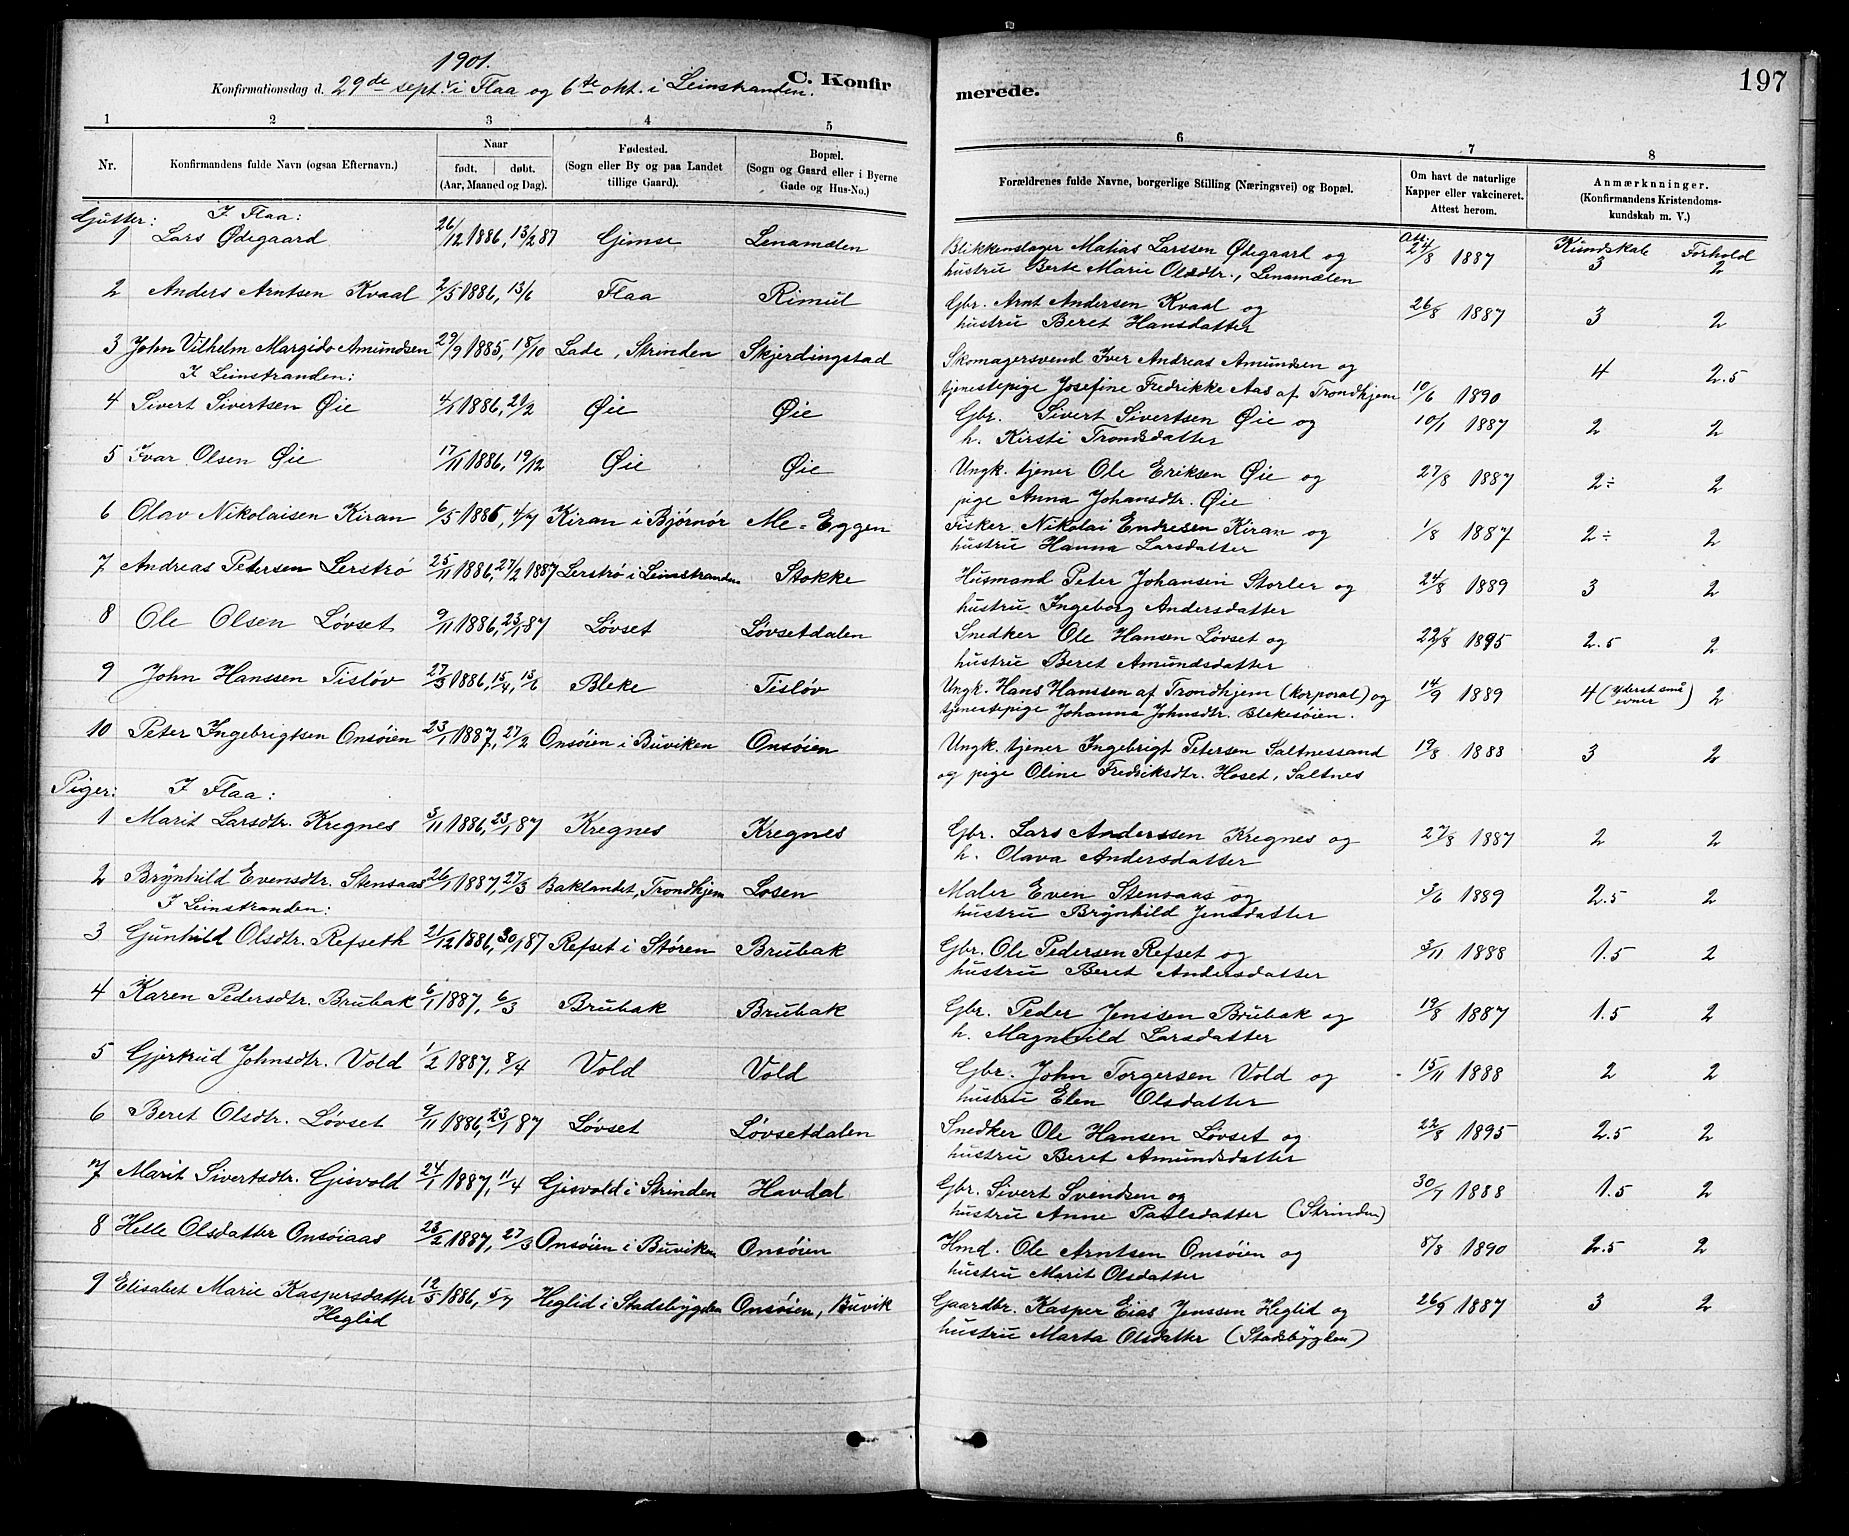 1901.
Konfirmationsdag d. 29de sept. i Flaa og 6te okt. i Leinstranden. C. Konfirmerede. 197
1 2 3 4 5 6 7 8
Nr. Konfirmandens fulde Navn (ogsaa Efternavn.) Naar født. døbt. (Aar, Maaned og Dag). Fødested. (Sogn eller By og paa Landet tillige Gaard). Bopæl. (Sogn og Gaard eller i Byerne Gade og Hus-No.) Forældrenes fulde Navne, borgerlige Stilling (Næringsvei) og Bopæl. Om havt de naturlige Kapper eller vakcineret. Attest herom. Anmærknninger. (Konfirmandens Kristendomskundskab m. V.)
Gutter: I Flaa:
1 Lars Ødegaard 26/12 1886, 13/2 87 Gimse Lenamælen Blikkenslager Matias Larssen Ødegaard og Att. 24/8 1887 Kundskab 3 Forhold 2
hustru Berte Marie Olsdtr., Lenamælen
2 Anders Arntsen Kvaal 2/5 1886, 13/6 Flaa Rimul Gbr. Arnt Andersen Kvaal og 26/8 1887 3 2
hustru Beret Hansdatter
3 John Vilhelm Margido Amundsen 29/9 1885, 18/10 Lade, Strinden Skjerdingstad Skomagersvend Iver Andreas Amundsen og 4 2.5
tjenestepige Josefine Fredrikke Aas af Trondhjem 10/6 1890
I Leinstranden:
4 Sivert Sivertsen Øie 4/1 1886, 21/2 Øie Øie Gbr. Sivert Sivertsen Øie og 10/1 1887 2 2
h. Kirsti Trondsdatter
5 Ivar Olsen Øie 17/11 1886, 19/12 Øie Øie Ungk. tjener Ole Eriksen Øie og 27/8 1887 2÷ 2
pige Anna Johansdtr. Øie
6 Olav Nikolaisen Kiran 6/5 1886, 4/7 Kiran i Bjørnør Me-Eggen Fisker Nikolai Endresen Kiran og 1/8 1887 2÷ 2
hustru Hanna Larsdatter
7 Andreas Petersen Lerstrø 25/11 1886, 27/2 1887 Lerstrø i Leinstranden Stokke Husmand Peter Johansen Storler og 24/8 1889 3 2
hustru Ingeborg Andersdatter
8 Ole Olsen Løvset 9/11 1886, 23/1 87 Løvset Løvsetdalen Snedker Ole Hansen Løvset og 22/8 1895 2.5 2
hustru Beret Amundsdatter
9 John Hanssen Tisløv 27/3 1886, 15/4, 13/6 Bleke Tisløv Ungk. Hans Hanssen af Trondhjem (korporal) og 14/9 1889 4 (yderst små evner) 2
tjenestepige Johanna Johnsdtr. Blekesøien.
10 Peter Ingebrigtsen Onsøien 23/1 1887, 27/2 Onsøien i Buviken Onsøien Ungk. tjener Ingebrigt Petersen Saltnessand 19/8 1888 3 2
og pige Oline Fredriksdtr. Hoset, Saltnes
Piger: I Flaa:
1 Marit Larsdtr. Kregnes 3/11 1886, 23/1 87 Kregnes Kregnes Gbr. Lars Anderssen Kregnes og 27/8 1887 2 2
h. Olava Andersdatter
2 Brynhild Evensdtr. Stensaas 26/1 1887, 27/3 Baklandet, Trondhjem Losen Maler Even Stensaas og 3/6 1889 2.5 2
hustru Brynhild Jensdatter
I Leinstranden:
3 Gunhild Olsdtr. Refseth 21/12 1886, 30/1 87 Refset i Støren Brubak Gbr. Ole Pedersen Refset og 3/11 1888 1.5 2
hustru Beret Andersdatter
4 Karen Pedersdtr. Brubak 6/1 1887, 6/3 Brubak Brubak Gbr. Peder Jenssen Brubak og 19/8 1887 1.5 2
h. Magnhild Larsdatter
5 Gjertrud Johnsdtr. Vold 1/2 1887, 8/4 Vold Vold Gbr. John Torgersen Vold og 15/11 1888 2 2
hustru Elen Olsdatter
6 Beret Olsdtr. Løvset 9/11 1886, 23/1 87 Løvset Løvsetdalen Snedker Ole Hansen Løvset og 22/8 1895 2.5 2
hustru Beret Amundsdatter
7 Marit Sivertsdtr. Gisvold 24/1 1887, 11/4 Gisvold i Strinden Havdal Gbr. Sivert Svendsen og 30/7 1888 1.5 2
hustru Anne Paulsdatter (Strinden)
8 Helle Olsdatter Onsøiaas 23/2 1887, 27/3 Onsøien i Buviken Onsøien Hmd. Ole Arntsen Onsøien og 8/8 1890 2.5 2
hustru Marit Olsdatter
9 Elisabet Marie Kaspersdatter Heglid 12/5 1886, 5/7 Heglid i Stadsbygden Onsøien, Buvik Gaardbr. Kasper Eias Jenssen Heglid og 26/9 1887 3 2
hustru Marta Olsdatter (Stadsbygden)